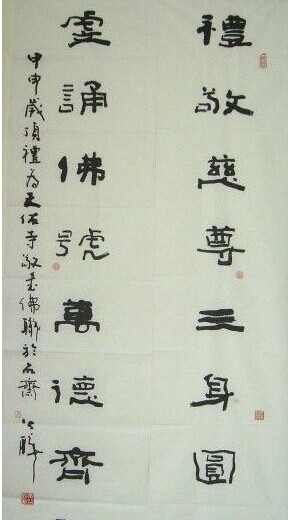 禮敬慈尊三身圓
虔誦佛號萬德齊
甲申歲頂禮為天佑寺敬書佛聯於石齋